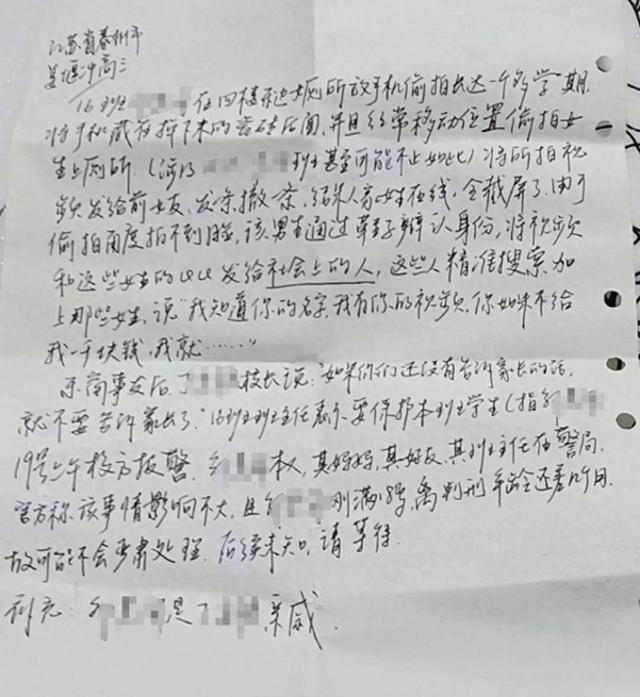 江苏省泰州市
姜堰中高三
16班 在四楼东边女厕所放手机偷拍长达一个多学期.
将手机藏在掉下来的瓷砖后面,并且经常移动位置偷拍女
生上厕所.(涉及 班甚至可能不止如此)将所拍视
频发给前女友,发条撤条,结果人家女生在线,全截屏了.由于
偷拍角度拍不到脸,该男生通过鞋子辨认身份,将视频
和这些女生的QQ发给社会上的人,这些人精准搜索加
上那些女生,说"我知道你的名字,我有你的视频,你如果不给
我一千块钱,我就……"
东窗事发后,丁 校长说:"如果你们还没有告诉家长的话,
就不要告诉家长了."16班班主任表示要保护本班学生(指
19号上午校方报警. 本人,其妈妈,其好友,其班主任在警局.
官方称该事情影响不大,且 刚满18岁,离判刑年龄还差几个月.
故可能不会严肃处理.后续未知,请等待.
补充: 是丁 亲戚.